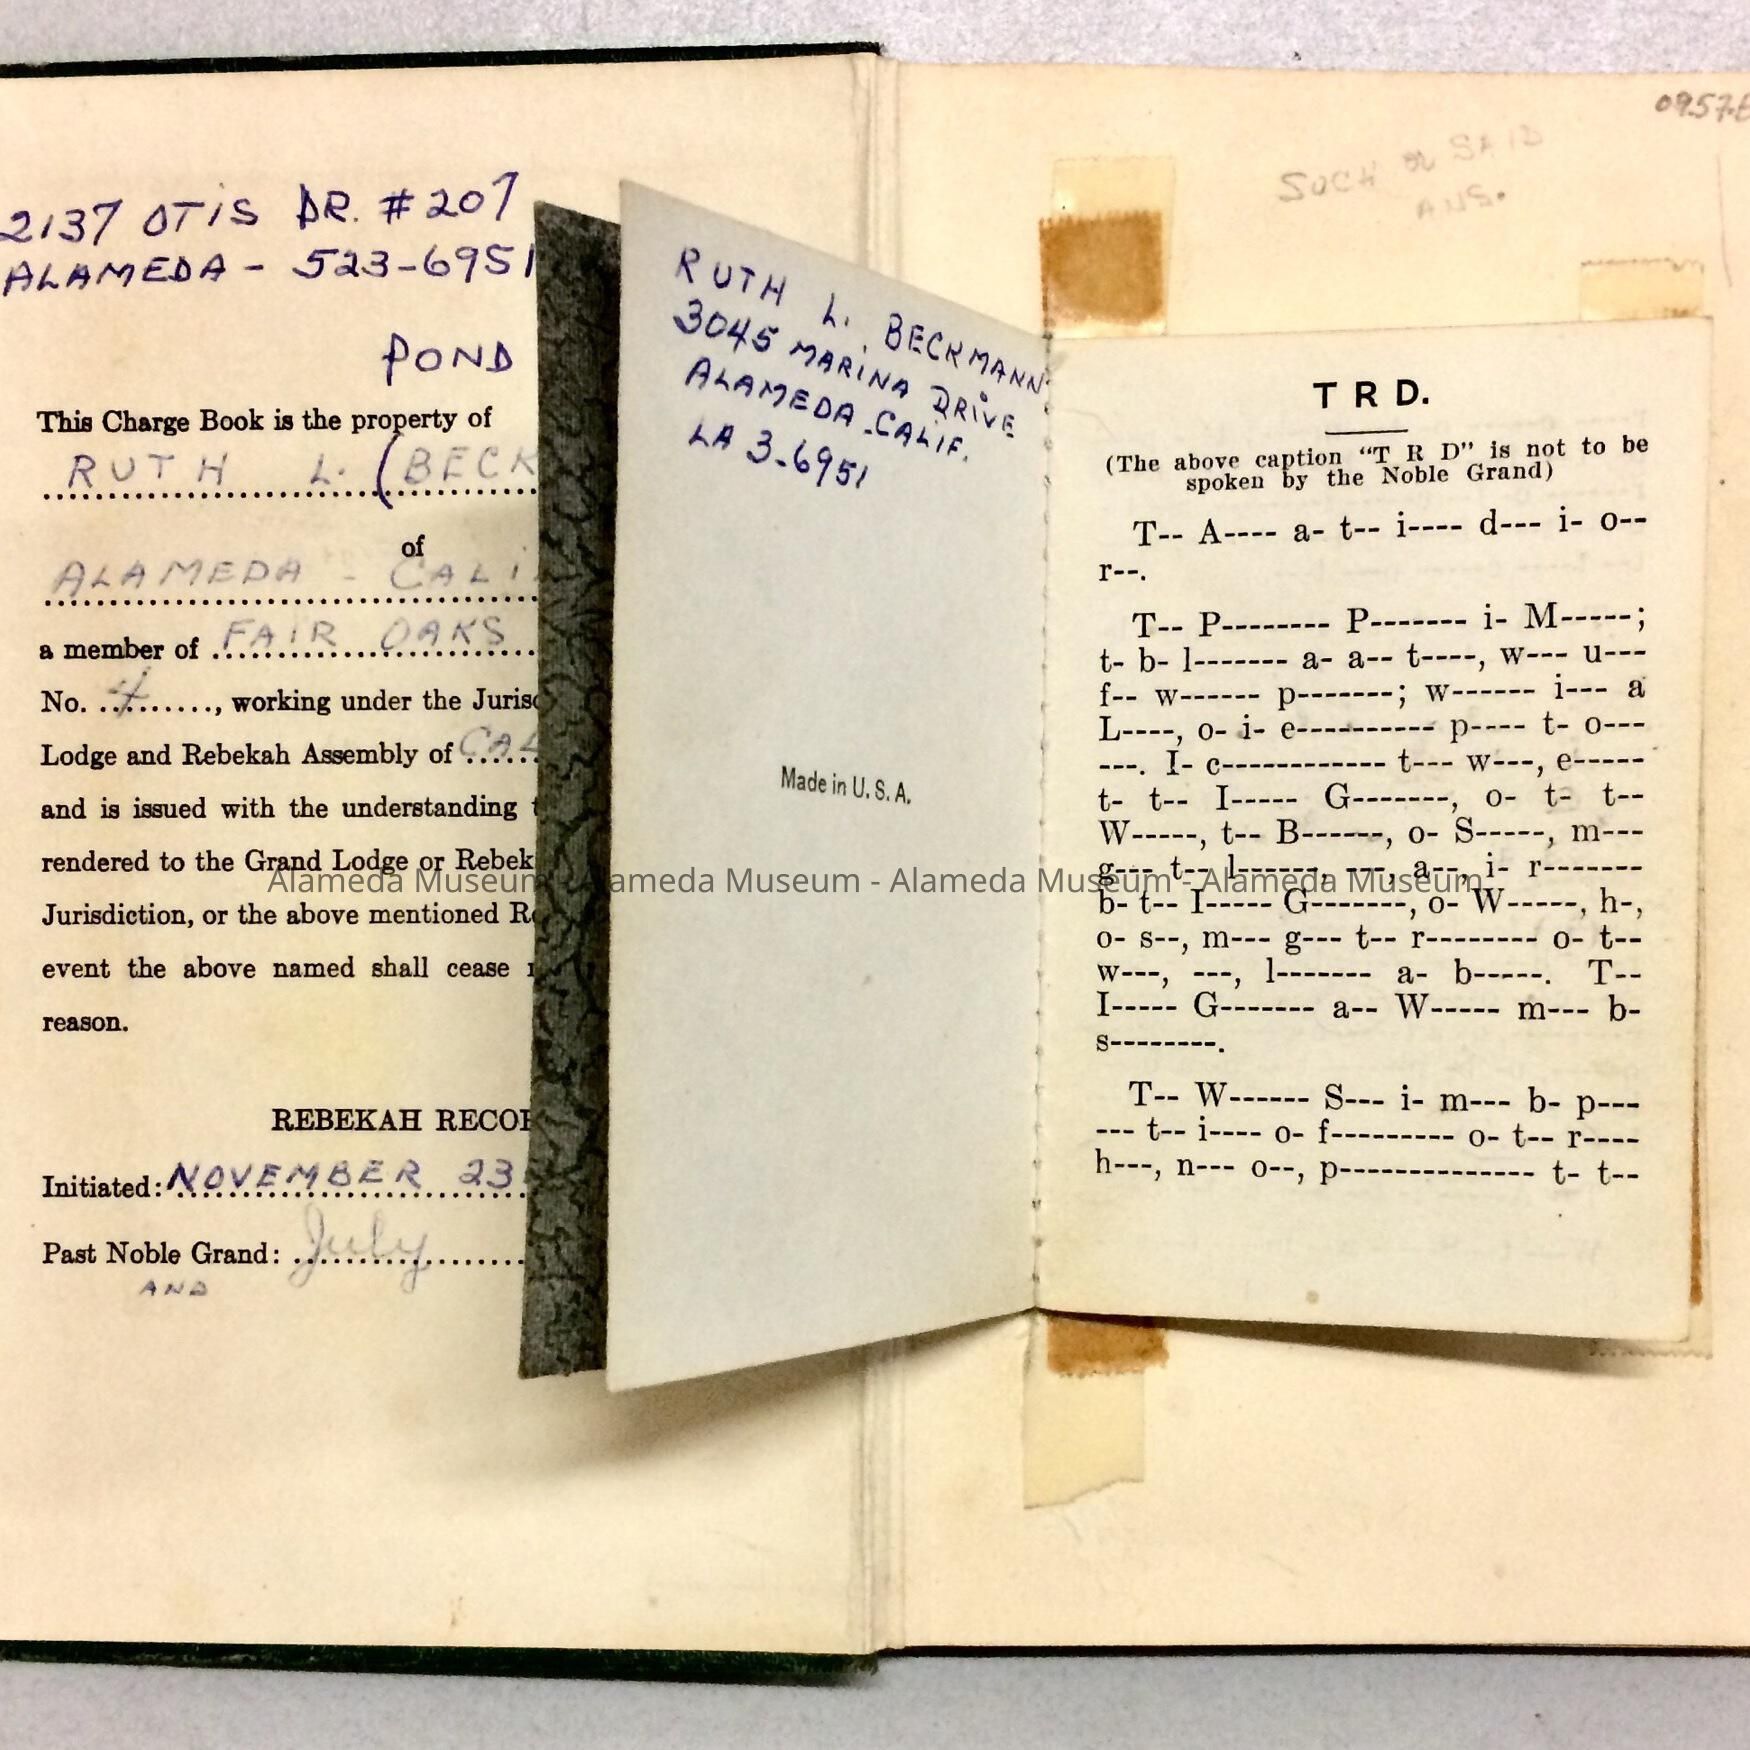 2137 OTIS DR. #207
ALAMEDA - 523-6951
POND
This Charge Book is the property of
RUTH L. (BECK
of
ALAMEDA - CALI
a member of FAIR OAKS
No. 4, working under the Juris
Lodge and Rebekah Assembly of CAL
and is issued with the understanding t
rendered to the Grand Lodge or Rebek
Jurisdiction, or the above mentioned R
event the above named shall cease
reason.
REBEKAH RECOR
Initiated: NOVEMBER 23
Past Noble Grand: July
AND
RUTH L. BECKMANN
3045 MARINA DRIVE
ALAMEDA - CALIF.
LA 3-6951
Made in U. S. A.
0957-
SUCH or SAID
ANS.
T R D.
(The above caption "T R D" is not to be
spoken by the Noble Grand)
T-- A---- a- t-- i---- d--- i- o--
r--.
T-- P-------- P------- i- M-----;
t- b- l------- a- a-- t----, w--- u---
f-- w------ p-------; w------ i--- a
L----, o- i- e---------- p---- t- o---
---. I- c------------ t--- w---, e-----
t- t-- I----- G-------, o- t- t--
W-----, t-- B------, o- S-----, m---
g--- t-- l------, ---, a--, i- r-------
b- t-- I----- G-------, o- W-----, h-,
o- s--, m--- g--- t-- r-------- o- t--
w---, ---, l------- a- b-----. T--
I----- G------- a-- W----- m--- b-
s--------.
T-- W------ S--- i- m--- b- p---
--- t-- i---- o- f--------- o- t-- r----
h---, n--- o--, p-------------- t- t--
Alameda Museum - Alameda Museum - Alameda Museum - Alameda Museum